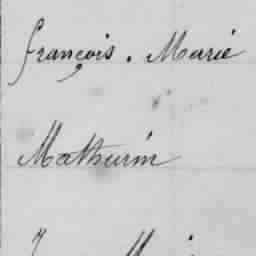 françois . Marie
Mathurin